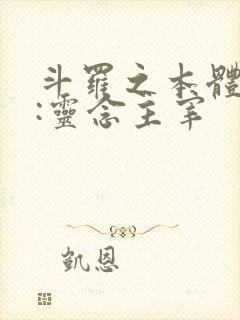 斗羅之本體
:靈念主宰
凱恩